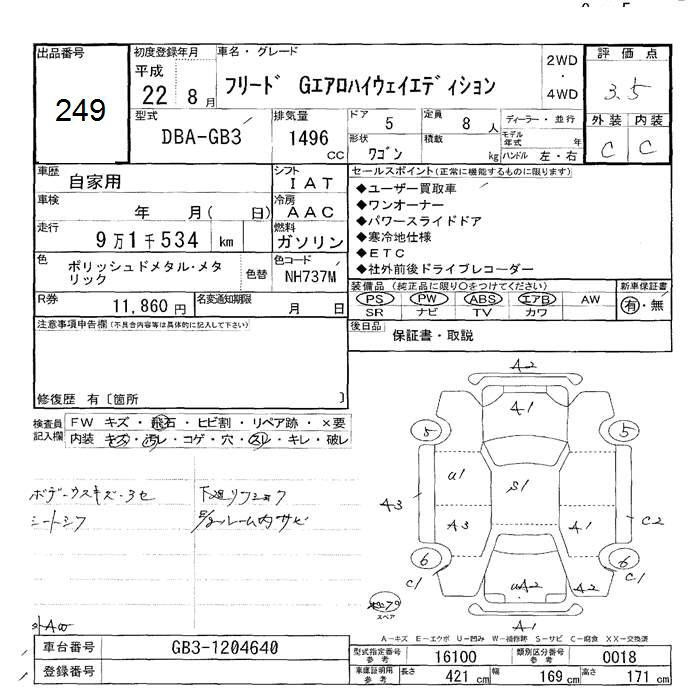 出品番号
249
初度登録年月
平成
22 8 月
車名・グレード
フリード Gエアロハイウェイエディション
2WD
・
4WD
評価点
3.5
外装 内装
C C
型式
DBA-GB3
排気量
1496
CC
ドア
5
定員
8 人
形状
ワゴン
積載
kg
ディーラー・並行
モデル年式 年
ハンドル 左・右
車歴
自家用
シフト
IAT
車検
年 月( 日)
冷房
AAC
走行
9万1千534 km
燃料
ガソリン
色
ポリッシュドメタル・メタリック
色替
色コード
NH737M
R券
11,860 円
名変通知期限
月 日
セールスポイント(正常に機能するものに限ります)
◆ユーザー買取車
◆ワンオーナー
◆パワースライドドア
◆寒冷地仕様
◆ETC
◆社外前後ドライブレコーダー
装備品 (純正品に限り○をつけてください)
PS PW ABS エアB AW
SR ナビ TV カワ
新車保証書
有・無
後日品
保証書・取説
注意事項申告欄(不具合内容等は具体的に記入して下さい)
修復歴 有〔箇所 〕
検査員記入欄
FW キズ・飛石・ヒビ割・リペア跡・×要
内装 キズ・汚レ・コゲ・穴・スレ・キレ・破レ
シートシワ
A2
A1
5 5
U1
S1
A3
A3
A1
C2
6 6
C1 C1
UA2
A2
A1
スペア
A-キズ E-エクボ U-凹み W-補修跡 S-サビ C-腐食 XX-交換済
車台番号
GB3-1204640
登録番号
型式指定番号
参考
16100
類別区分番号
参考
0018
車庫証明用
参考
長さ
421 cm
幅
169 cm
高さ
171 cm